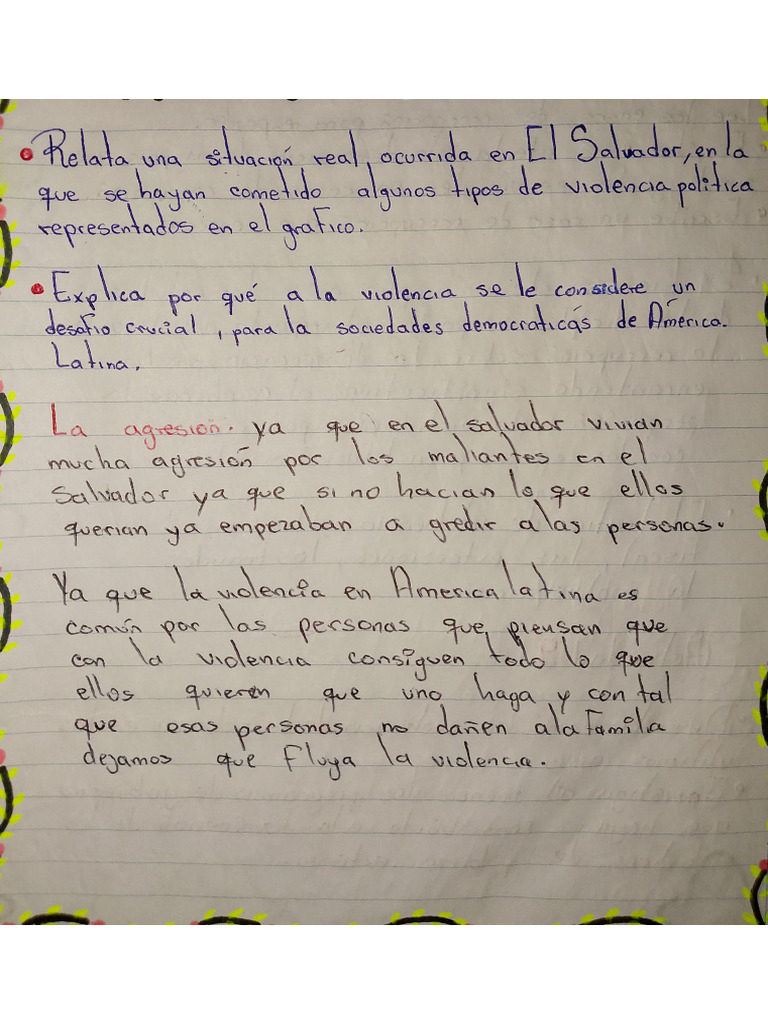 Relata una situación real, ocurrida en El Salvador, en la
que se hayan cometido algunos tipos de violencia politica
representados en el grafico.
Explica por qué a la violencia se le considere un
desafio crucial, para la sociedades democraticás de América.
Latina.
La agresion. ya que en el salvador vivian
mucha agresión por los maliantes en el
Salvador ya que si no hacian lo que ellos
querian ya empezaban a gredir a las personas.
Ya que la violencia en America latina es
común por las personas que piensan que
con la violencia consiguen todo lo que
ellos quieren que uno haga y con tal
que esas personas no dañen a la familia
dejamos que Fluya la violencia.